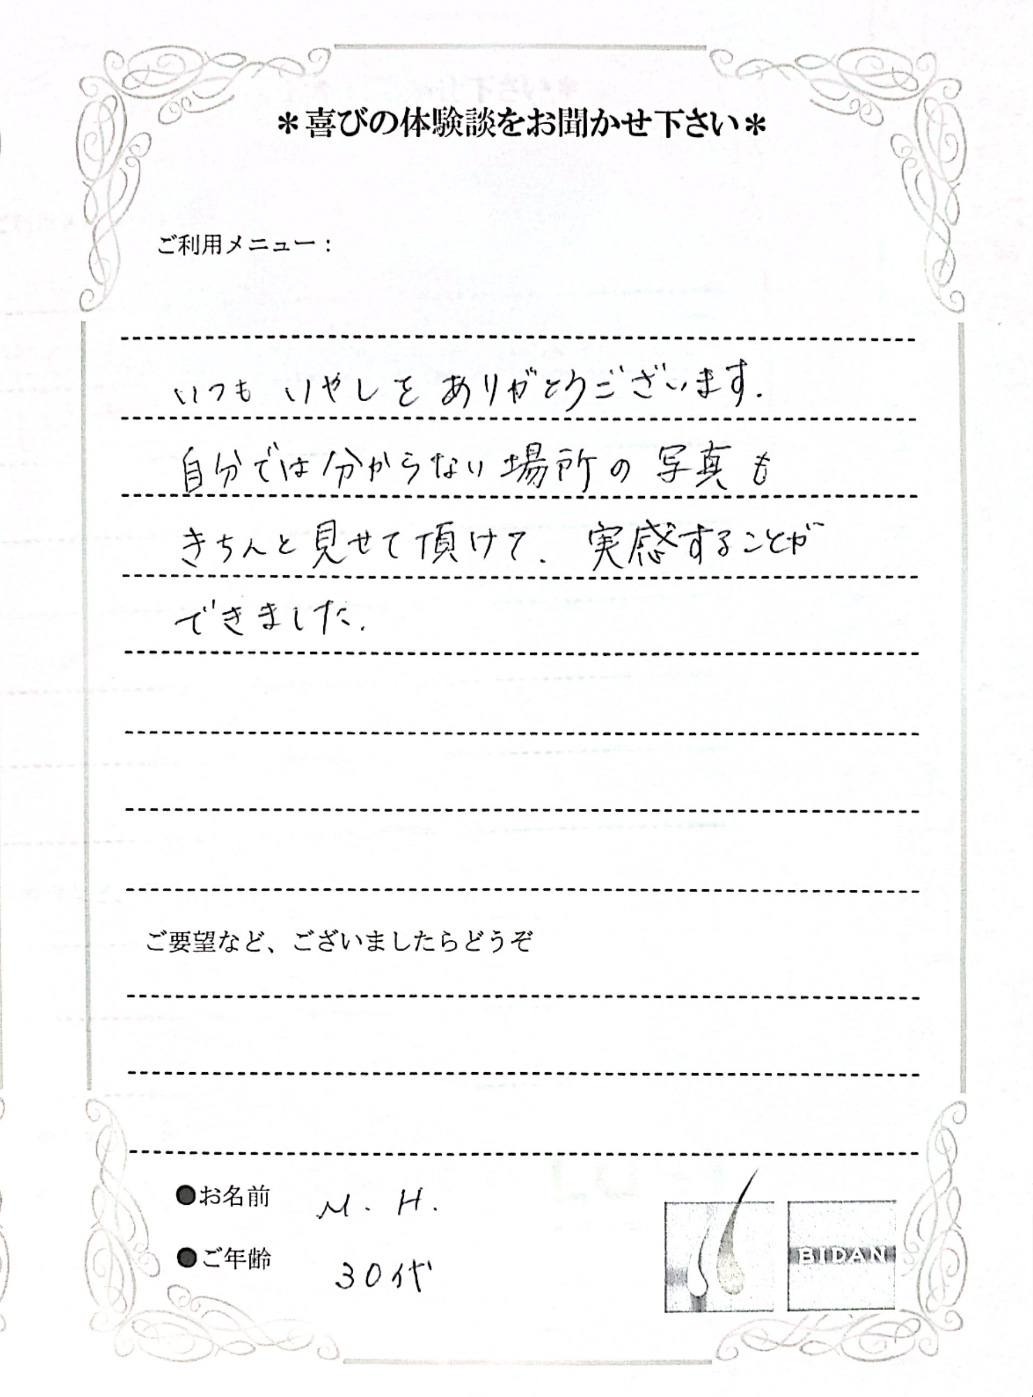 ＊喜びの体験談をお聞かせ下さい＊
ご利用メニュー：
いつも いやしを ありがとうございます.
自分では分からない場所の写真も
きちんと見せて頂けて. 実感することが
できました.
ご要望など、ございましたらどうぞ
●お名前 M. H.
●ご年齢 30代
BIDAN